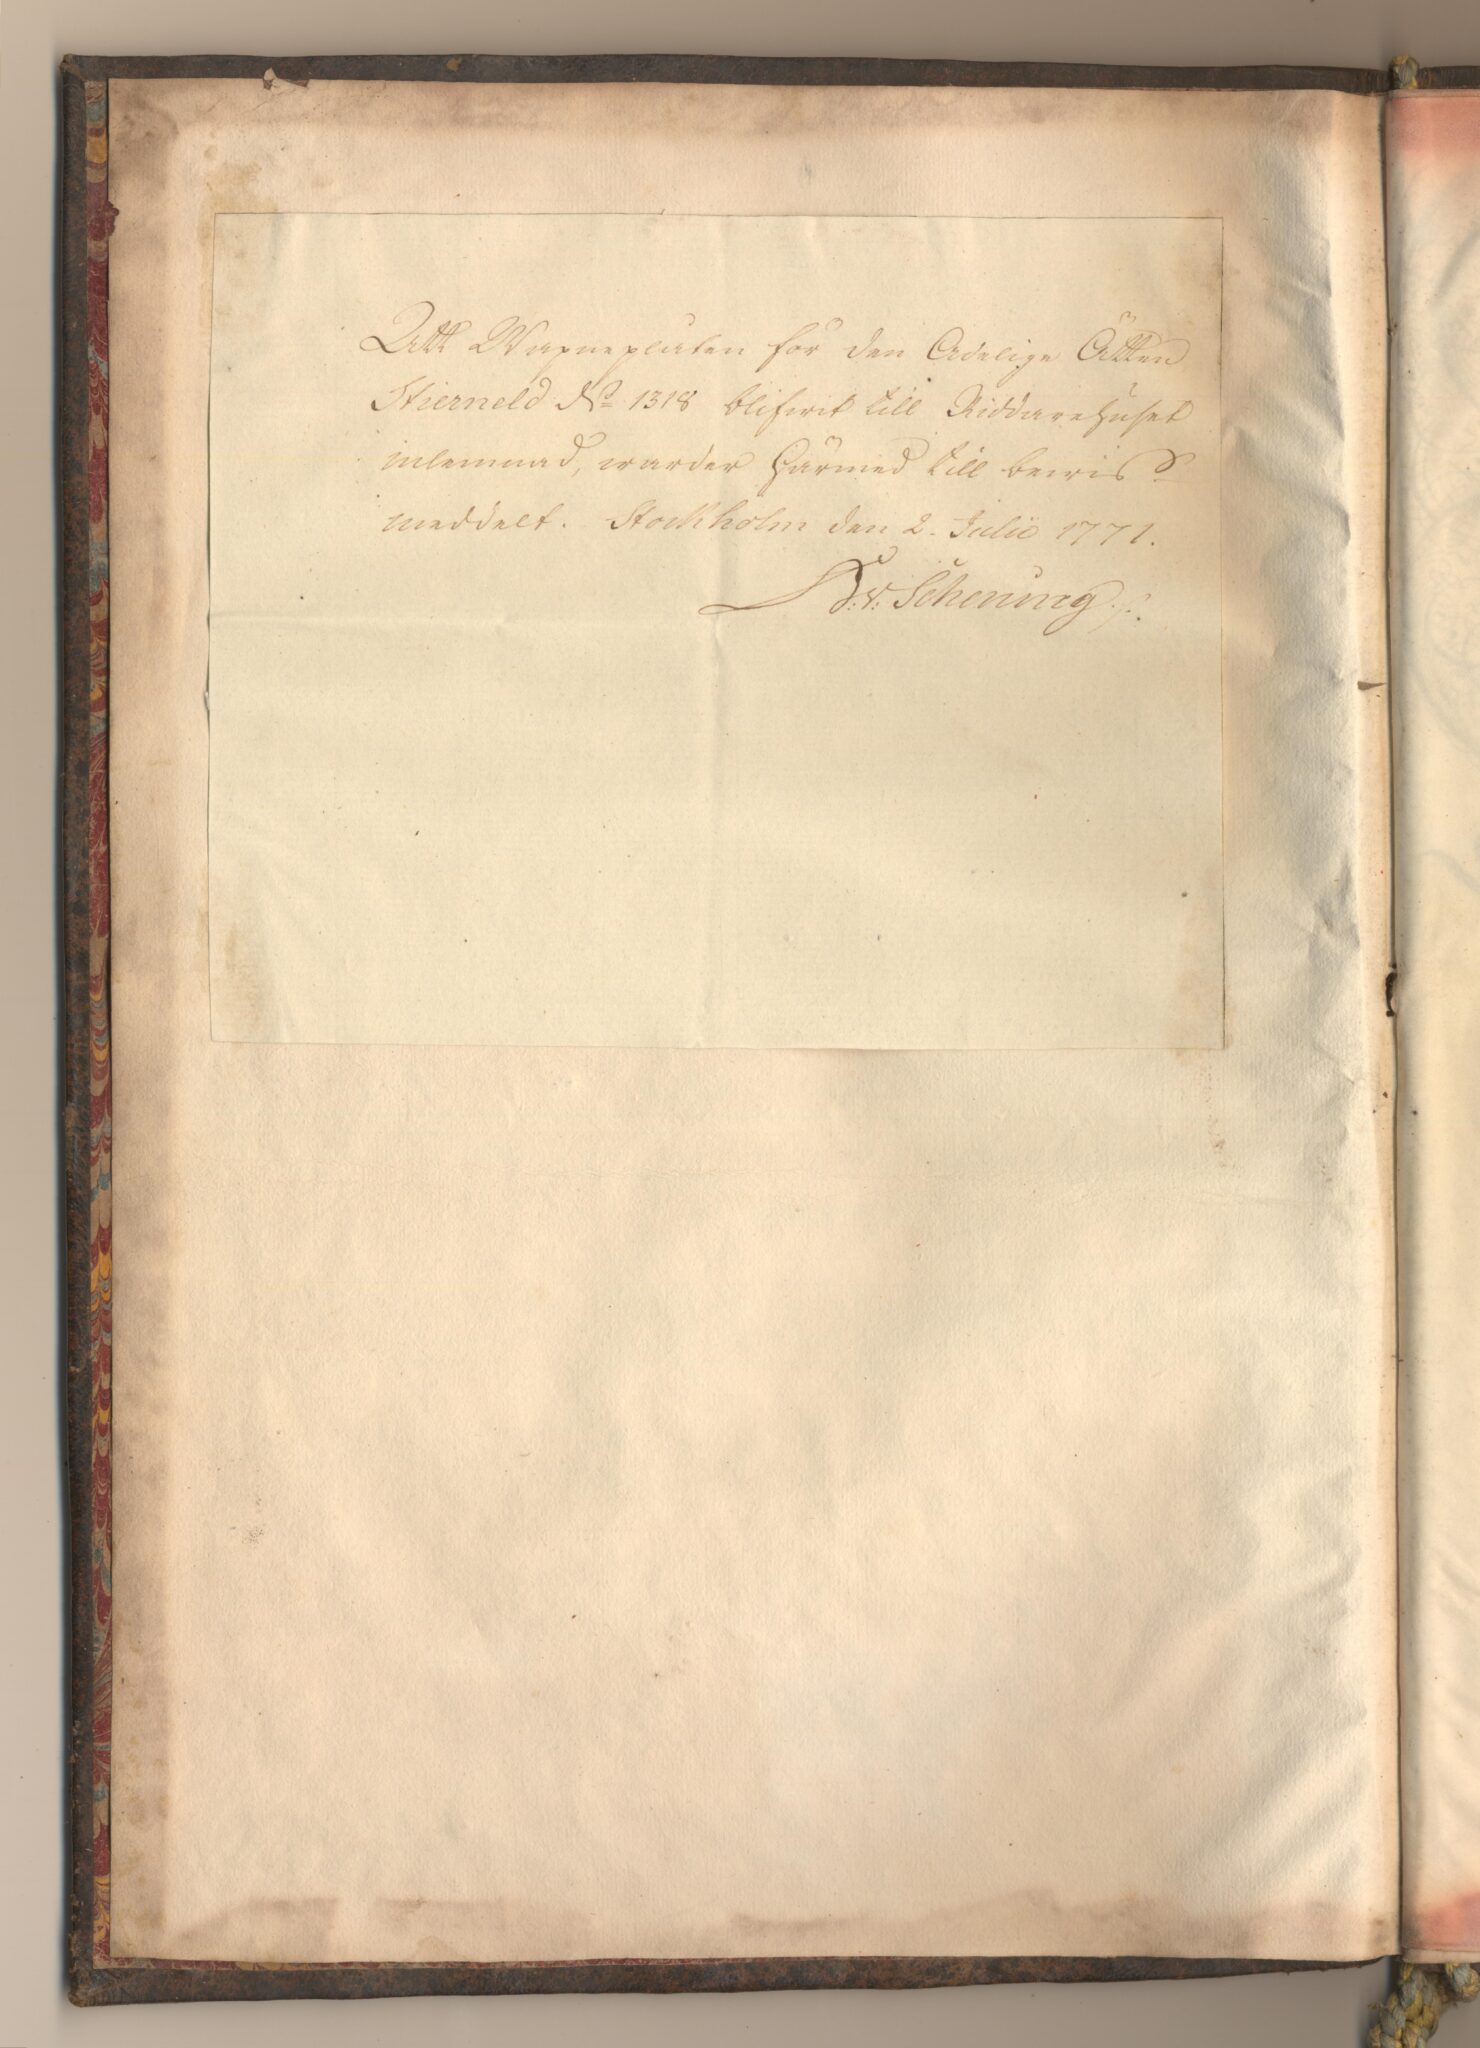 Att Wapneplåten för den Adelige Ätten
Stierneld No 1318 blifwit till Riddarehuset
inlemnad, warder härmed till bewis
meddelt. Stockholm den 2. Julii 1771.
v: Schening